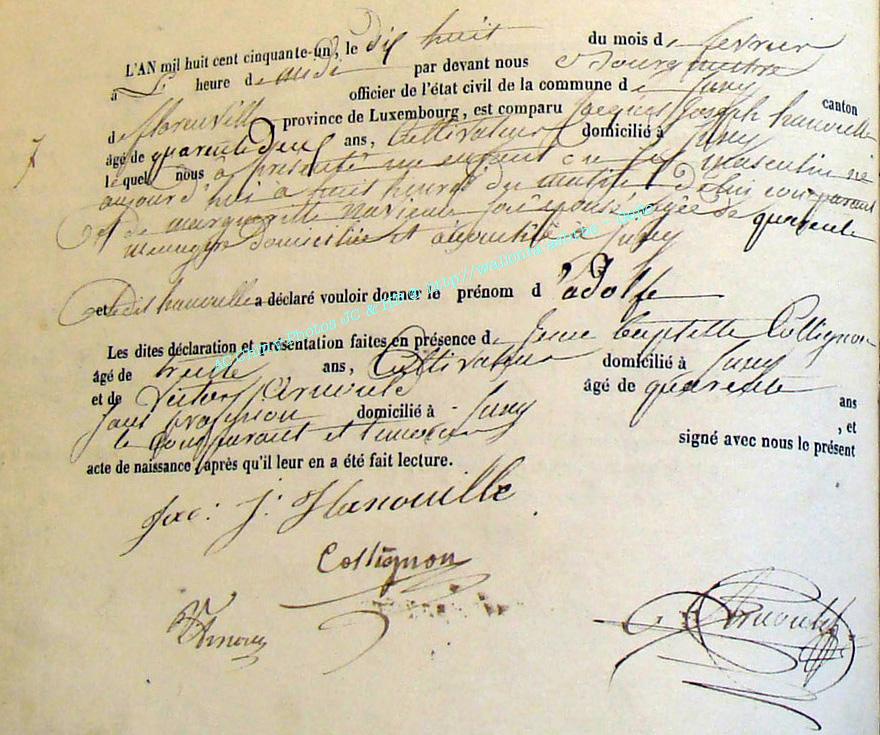 L'AN mil huit cent cinquante-un, le dix huit du mois de fevrier
à L' heure de midi par devant nous Bourgmestre
officier de l'état civil de la commune de Juny canton
de florenville province de Luxembourg, est comparu Jacques Joseph hanouille
âgé de quarente deux ans, Cultivateur domicilié à Juny
lequel nous à présenté un enfant du masculin né
aujourd'hui à huit heures du matin de lui comparant
et de marguerite son épouse agée de quarente
domiciliée et à Juny
et Ledit hanouille a déclaré vouloir donner le prénom d'adolfe
Les dites déclaration et présentation faites en présence de Jean Baptiste Collignon
âgé de trente ans, Cultivateur domicilié à Juny
et de Victor Arnould âgé de quarente ans
Sans domicilié à Juny , et
le comparant et temoins signé avec nous le présent
acte de naissance, après qu'il leur en a été fait lecture.
Jac: J: Hanouille
Collignon
V Arnould
Arnould
Photos JC & http://wallonia.